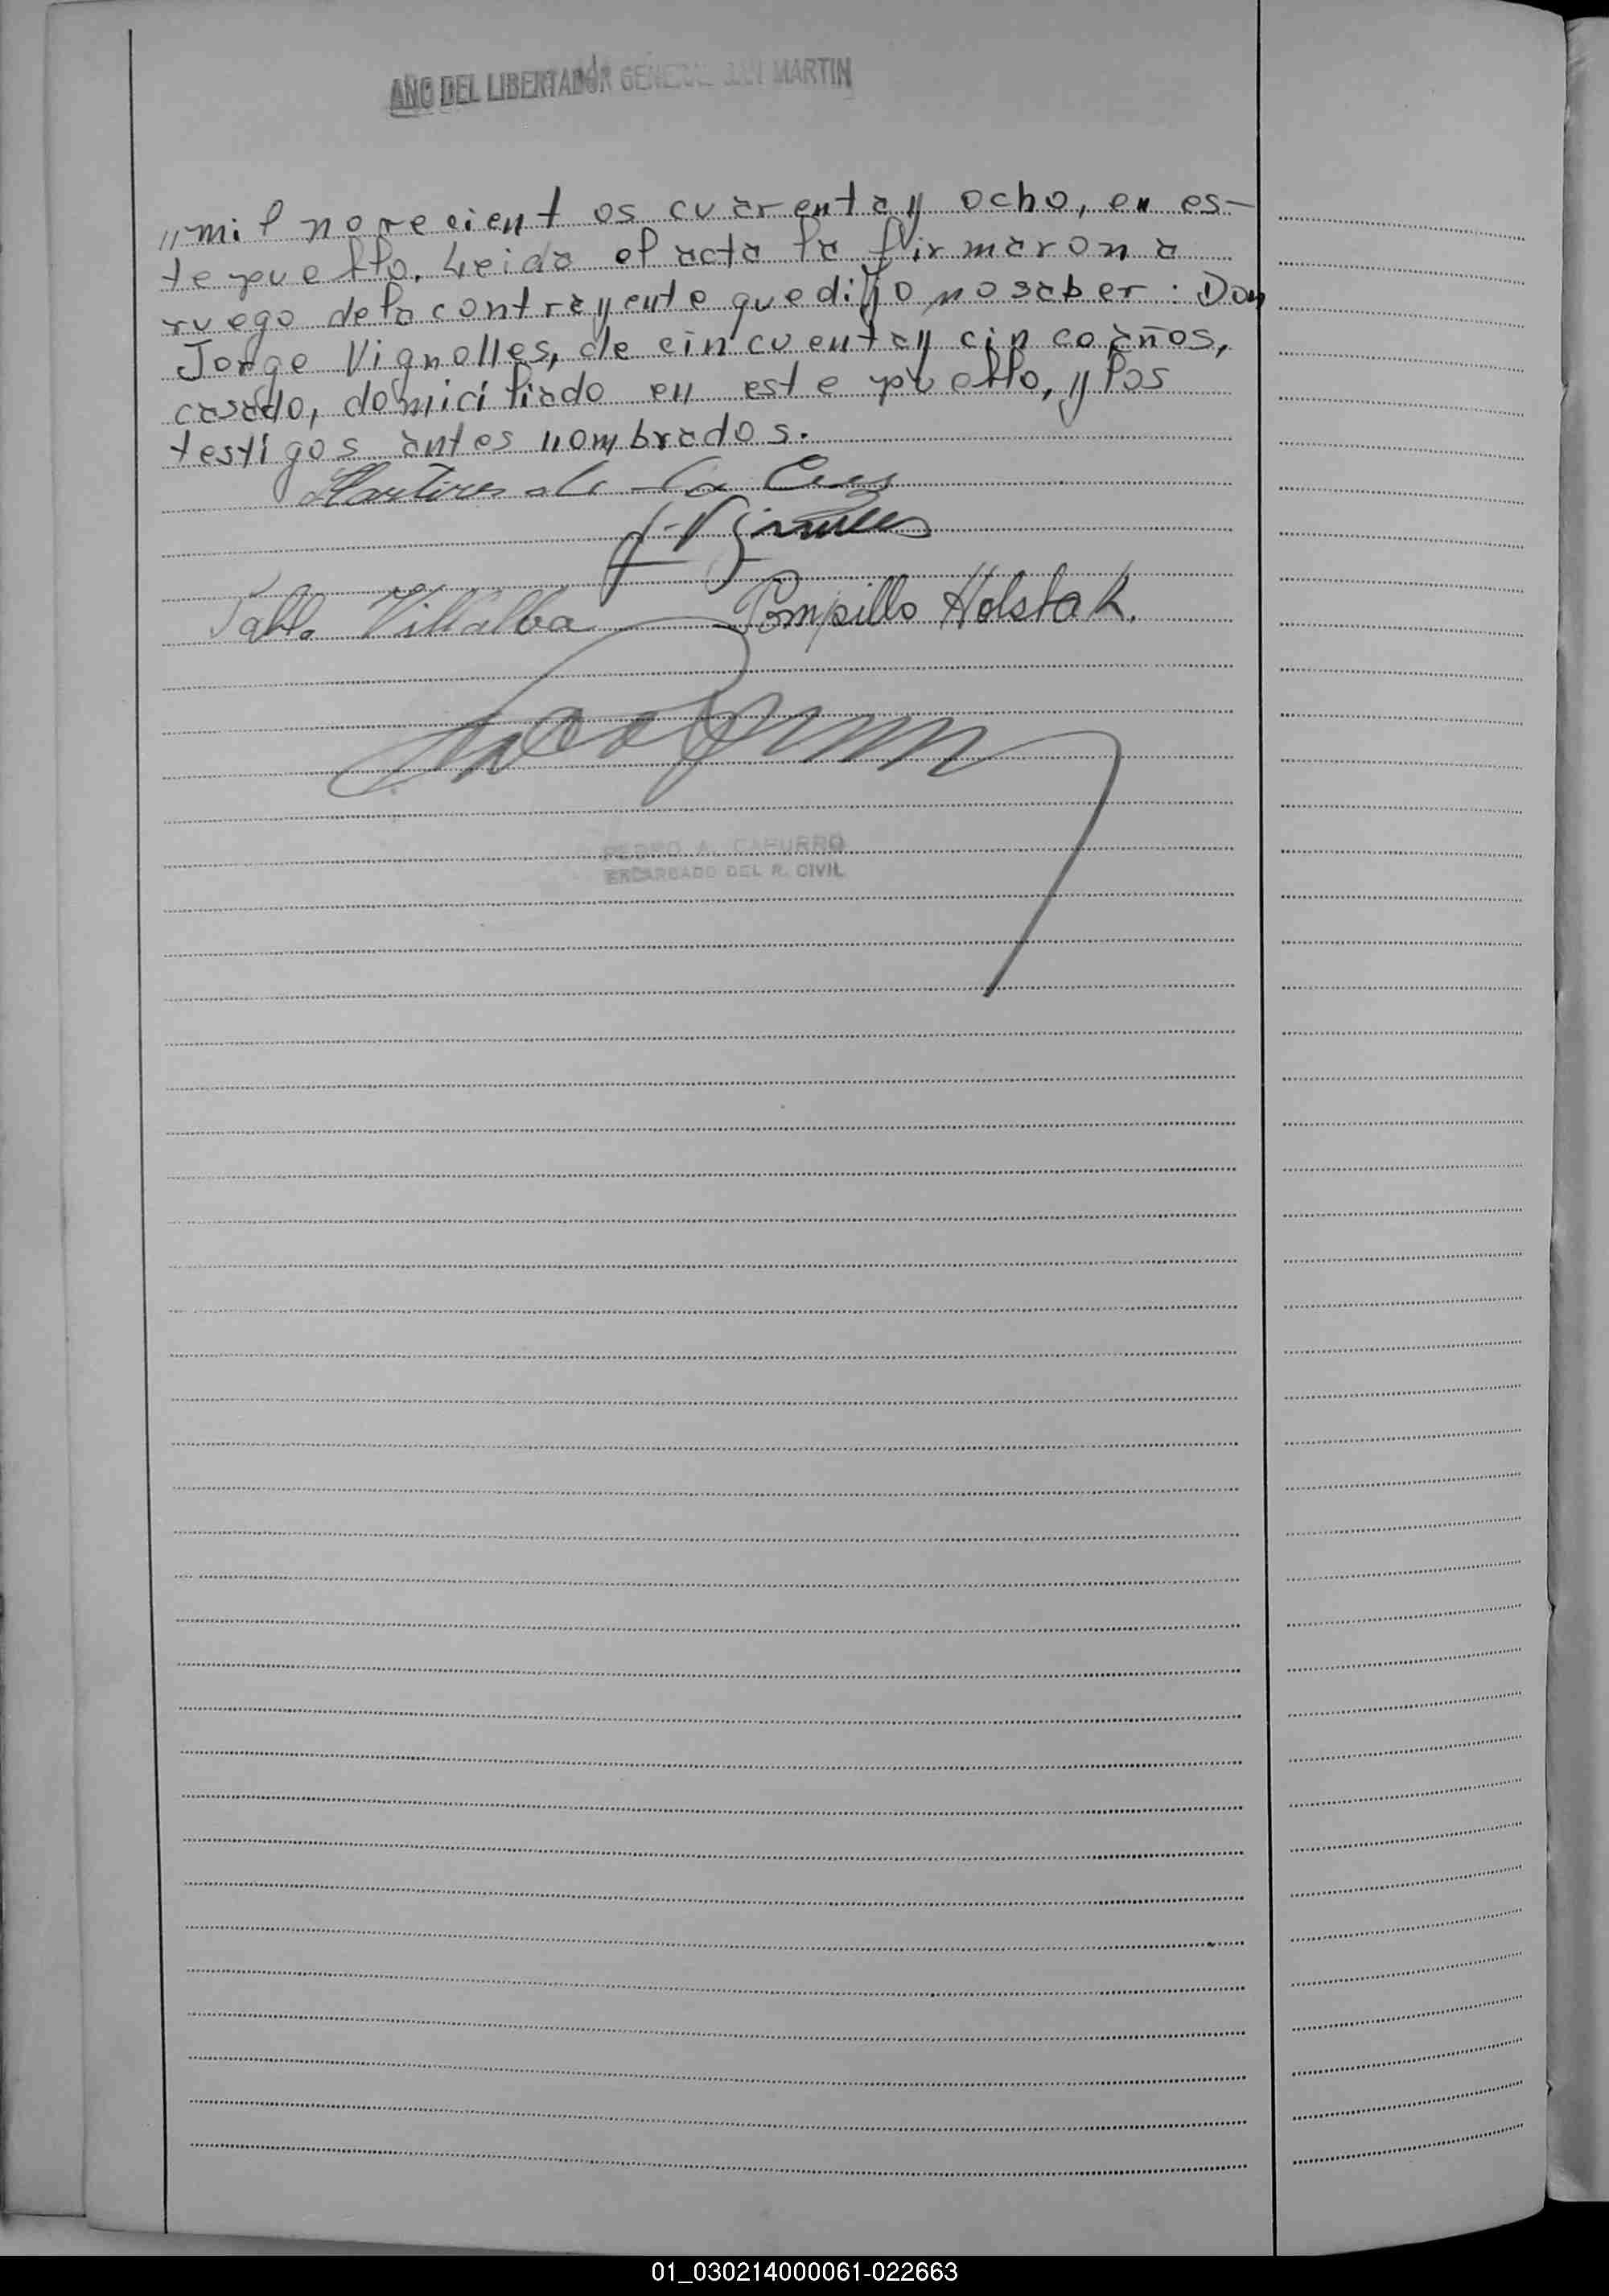 AÑO DEL LIBERTADOR GENERAL SAN MARTIN
„mil novecientos cuarenta y ocho, en es-
te pueblo. Leida el acta la firmaron a
ruego de la contrayente que dijo no saber: Don
Jorge Vignolles, de cincuenta y cinco años,
casado, domiciliado en este pueblo, y los
testigos antes nombrados.
Martires de la Cruz
J. Vignolles
Pablo Villalba Pompillo Holstak.
PEDRO A. CAFURRO
ENCARGADO DEL R. CIVIL
01_030214000061-022663